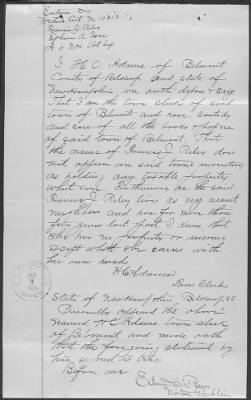 I H.C. Adams of Belmont
County of Belknap and state of
NewHampshire on oath depose & say
That I am the town clerk of said
town of Belmont and have custody
and care of all the books & papers
of said town of Belmont That
the name of J Riley does
not appear on said town inventory
as holding any taxable property
what ever. Furthermore as the said
J Riley lives as my nearest
neighbor and has for more than
five years last past I know that
she has no property or income
except what she earns with
her own hands
H C Adams
Town Clerk
State of New Hampshire Belknap SS
Personally appeared the above
named H C Adams town clerk
of Belmont and made oath
that the foregoing statement by
him is true
Before me
Notary Public